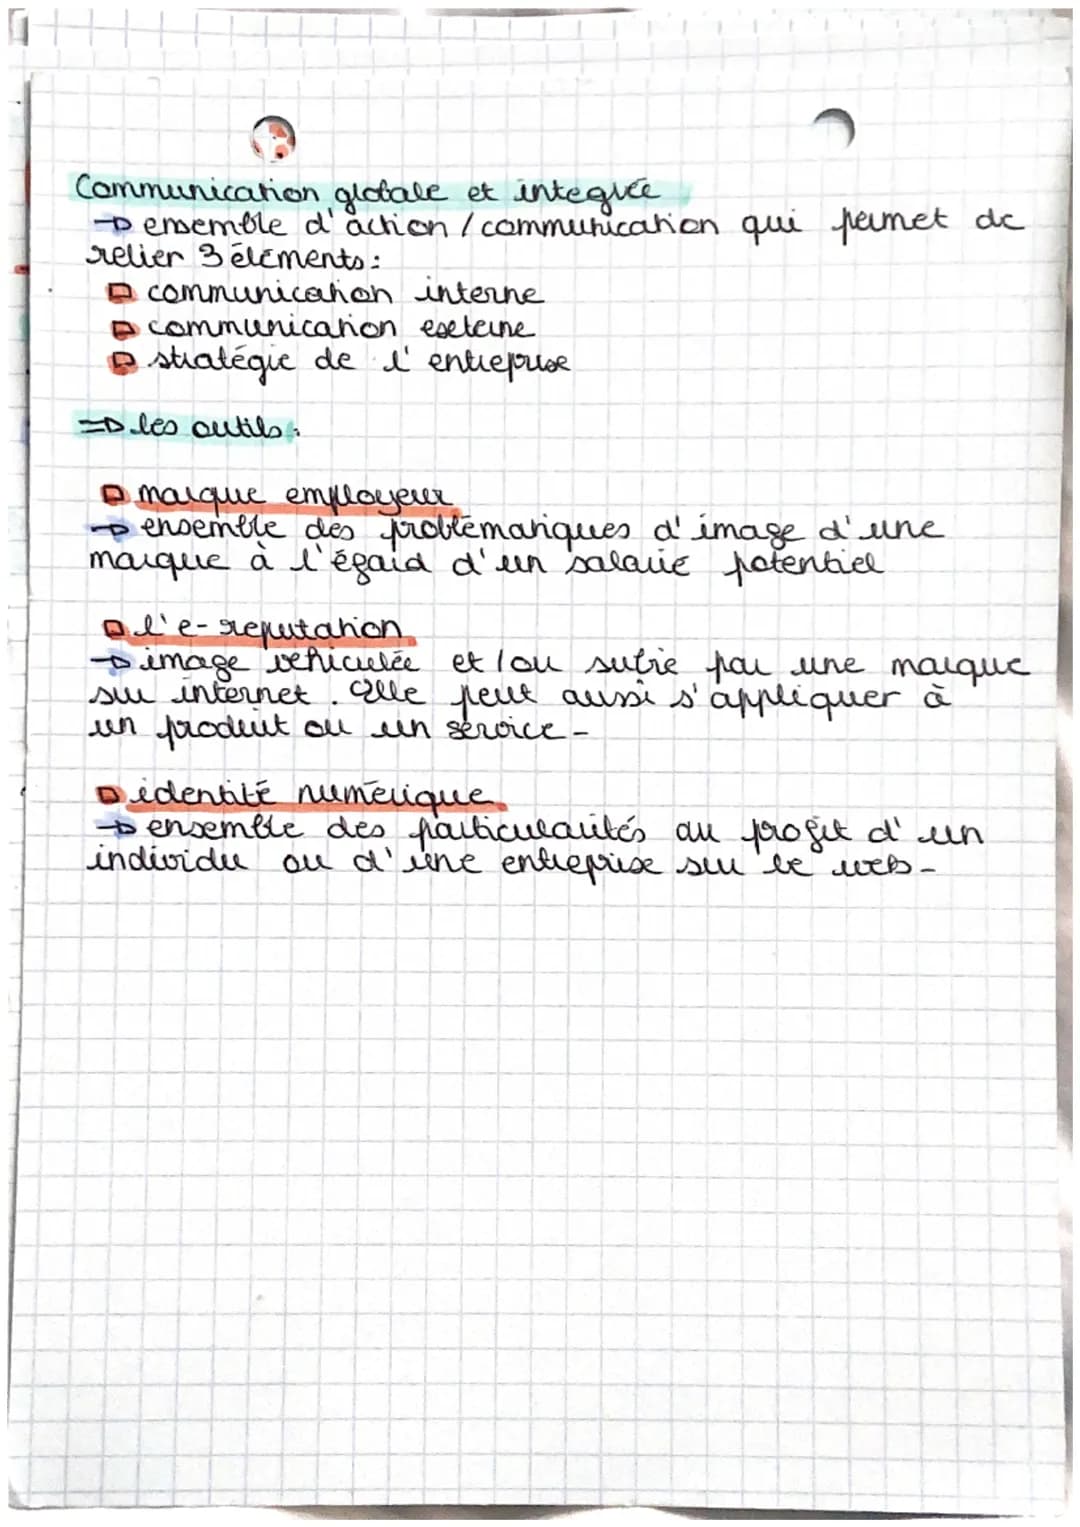 Communication globale et integrée
→ ensemble d'action / communication qui permet de
relier 3 éléments :
communication interne
communication externe
stratégie de l'entreprise
⇒ les outils :
marque employeur
→ ensemble des problématiques d'image d'une
marque à l'égard d'un salarié potentiel
l'e-reputation
→ image vehiculée et/ou subie par une marque
sur internet. Elle peut aussi s'appliquer à
un produit ou un service-
identité numérique
→ ensemble des particularités au profit d'un
individu ou d'une entreprise sur le web-